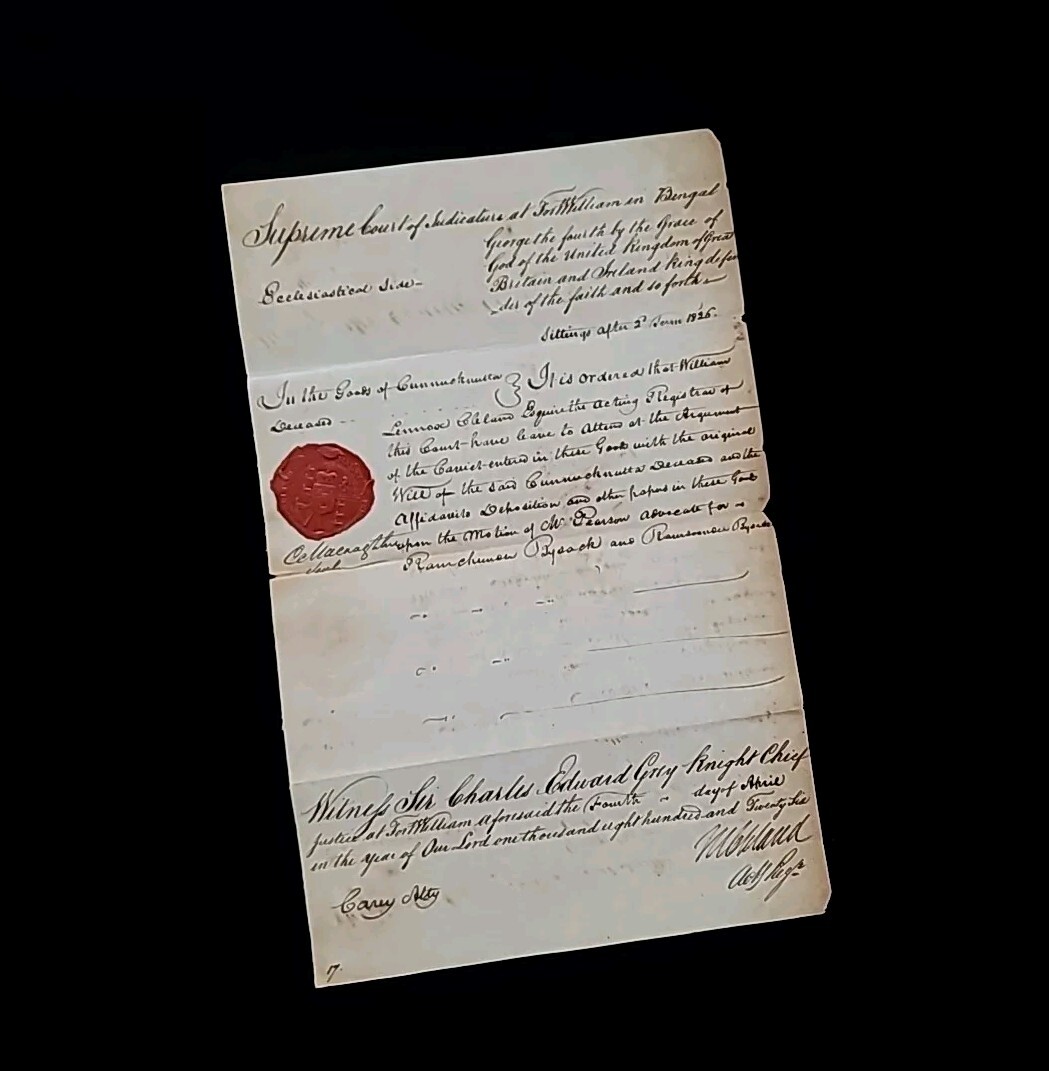 Supreme Court of Judicature at Fort William in Bengal
George the fourth by the Grace of
God of the United Kingdom of Great
Britain and Ireland King defen
Ecclesiastical Side
der of the faith and so forth
Sittings after 2d Term 1826.
In the Goods of Cunnuchnutta } It is ordered that William
Deceased
Lennox Cleland Esquire the Acting Registrar of
this Court have leave to Attend at the Argument
of the Caviet entered in these Goods with the original
Will of the said Cunnuchnutta Deceased and the
Affidavits Deposition and other papers in these Goods
upon the Motion of Mr. Pearson Advocate for
Ramchunder Bysack and
Witness Sir Charles Edward Grey Knight Chief
Justice at Fort William aforesaid the Fourth day of April
in the year of Our Lord one thousand eight hundred and Twenty Six
WCleland
Actg Regr.
Carey Atty
7.